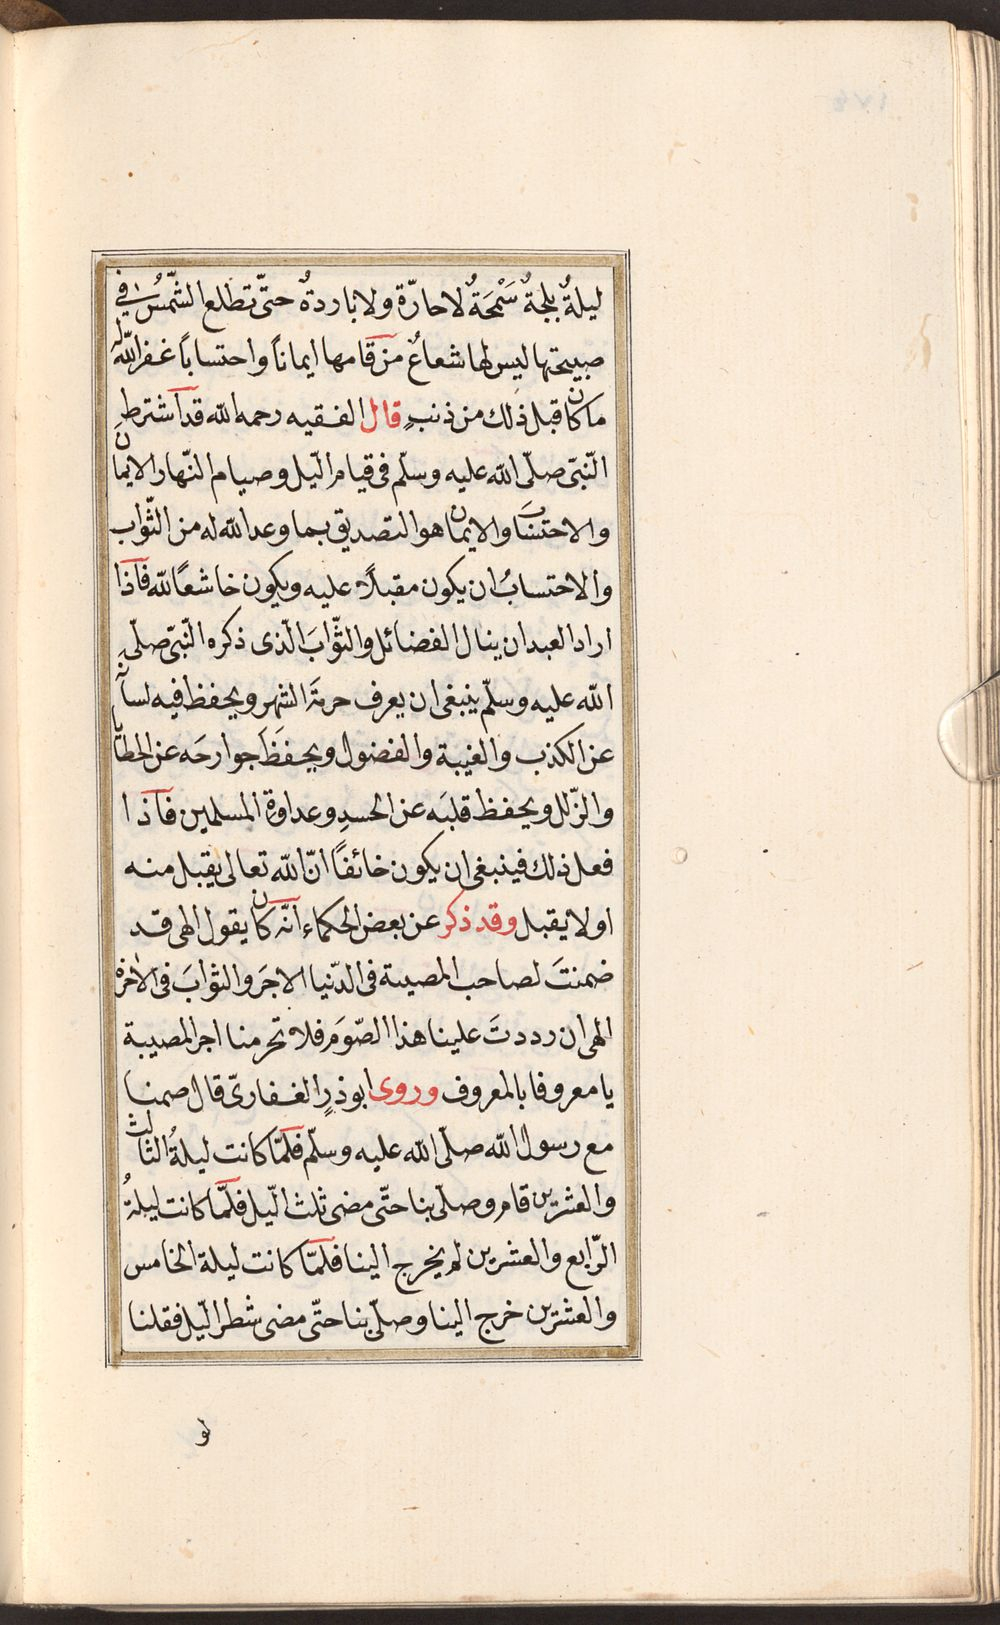 ليلةٌ بلجةٌ سَمْحَةٌ لا حارّة ولا باردةٌ حتّى تطلع الشّمسُ في
صبيحتها ليس لها شعاعٌ من قامها ايماناً واحتساباً غفر الله له
ما كان قبل ذلك من ذنبٍ قال الفقيه رحمه الله قد اشترط
النّبىّ صلّى الله عليه وسلّم فى قيام الّيل وصيام النّهار الايمان
والاحتساب والايمان هو التصديق بما وعد الله له من الثّواب
والاحتسابُ ان يكون مقبلاً عليه ويكون خاشعًا لله فاذا
اراد العبد ان ينال الفضائل والثّوابَ الّذى ذكره النّبىّ صلّى
الله عليه وسلّم ينبغى ان يعرف حرمَةَ الشهر ويحفظ فيه لسانه
عن الكذب والغيبة والفضول ويحفَظَ جوارحَه عن الخطايا
والزّلل ويحفظ قلبَه عن الحسدِ وعداوة المسلمين فاذا
فعل ذلك فينبغى ان يكون خائفاً انّ الله تعالى يقبل منه
او لا يقبل وقد ذكر عن بعض الحكماء انّه كان يقول الهى قد
ضمنتَ لصاحب المصيبة فى الدّنيا الاجرَ والثوابَ فى الآخرة
الهى ان رددتَ علينا هذا الصّومَ فلا تحرمنا اجر المصيبة
يا معروفا بالمعروف وروى ابو ذرٍ الغفارىّ قال صمنا
مع رسول الله صلّى الله عليه وسلّم فلمّا كانت ليلةُ الثالث
والعشرين قام وصلّى بنا حتّى مضى ثلث الّيل فلمّا كانت ليلةُ
الرّابع والعشرين لم يخرج الينا فلمّا كانت ليلة الخامس
والعشرين خرج الينا وصلّى بنا حتّى مضى شطر الّيل فقلنا
لو